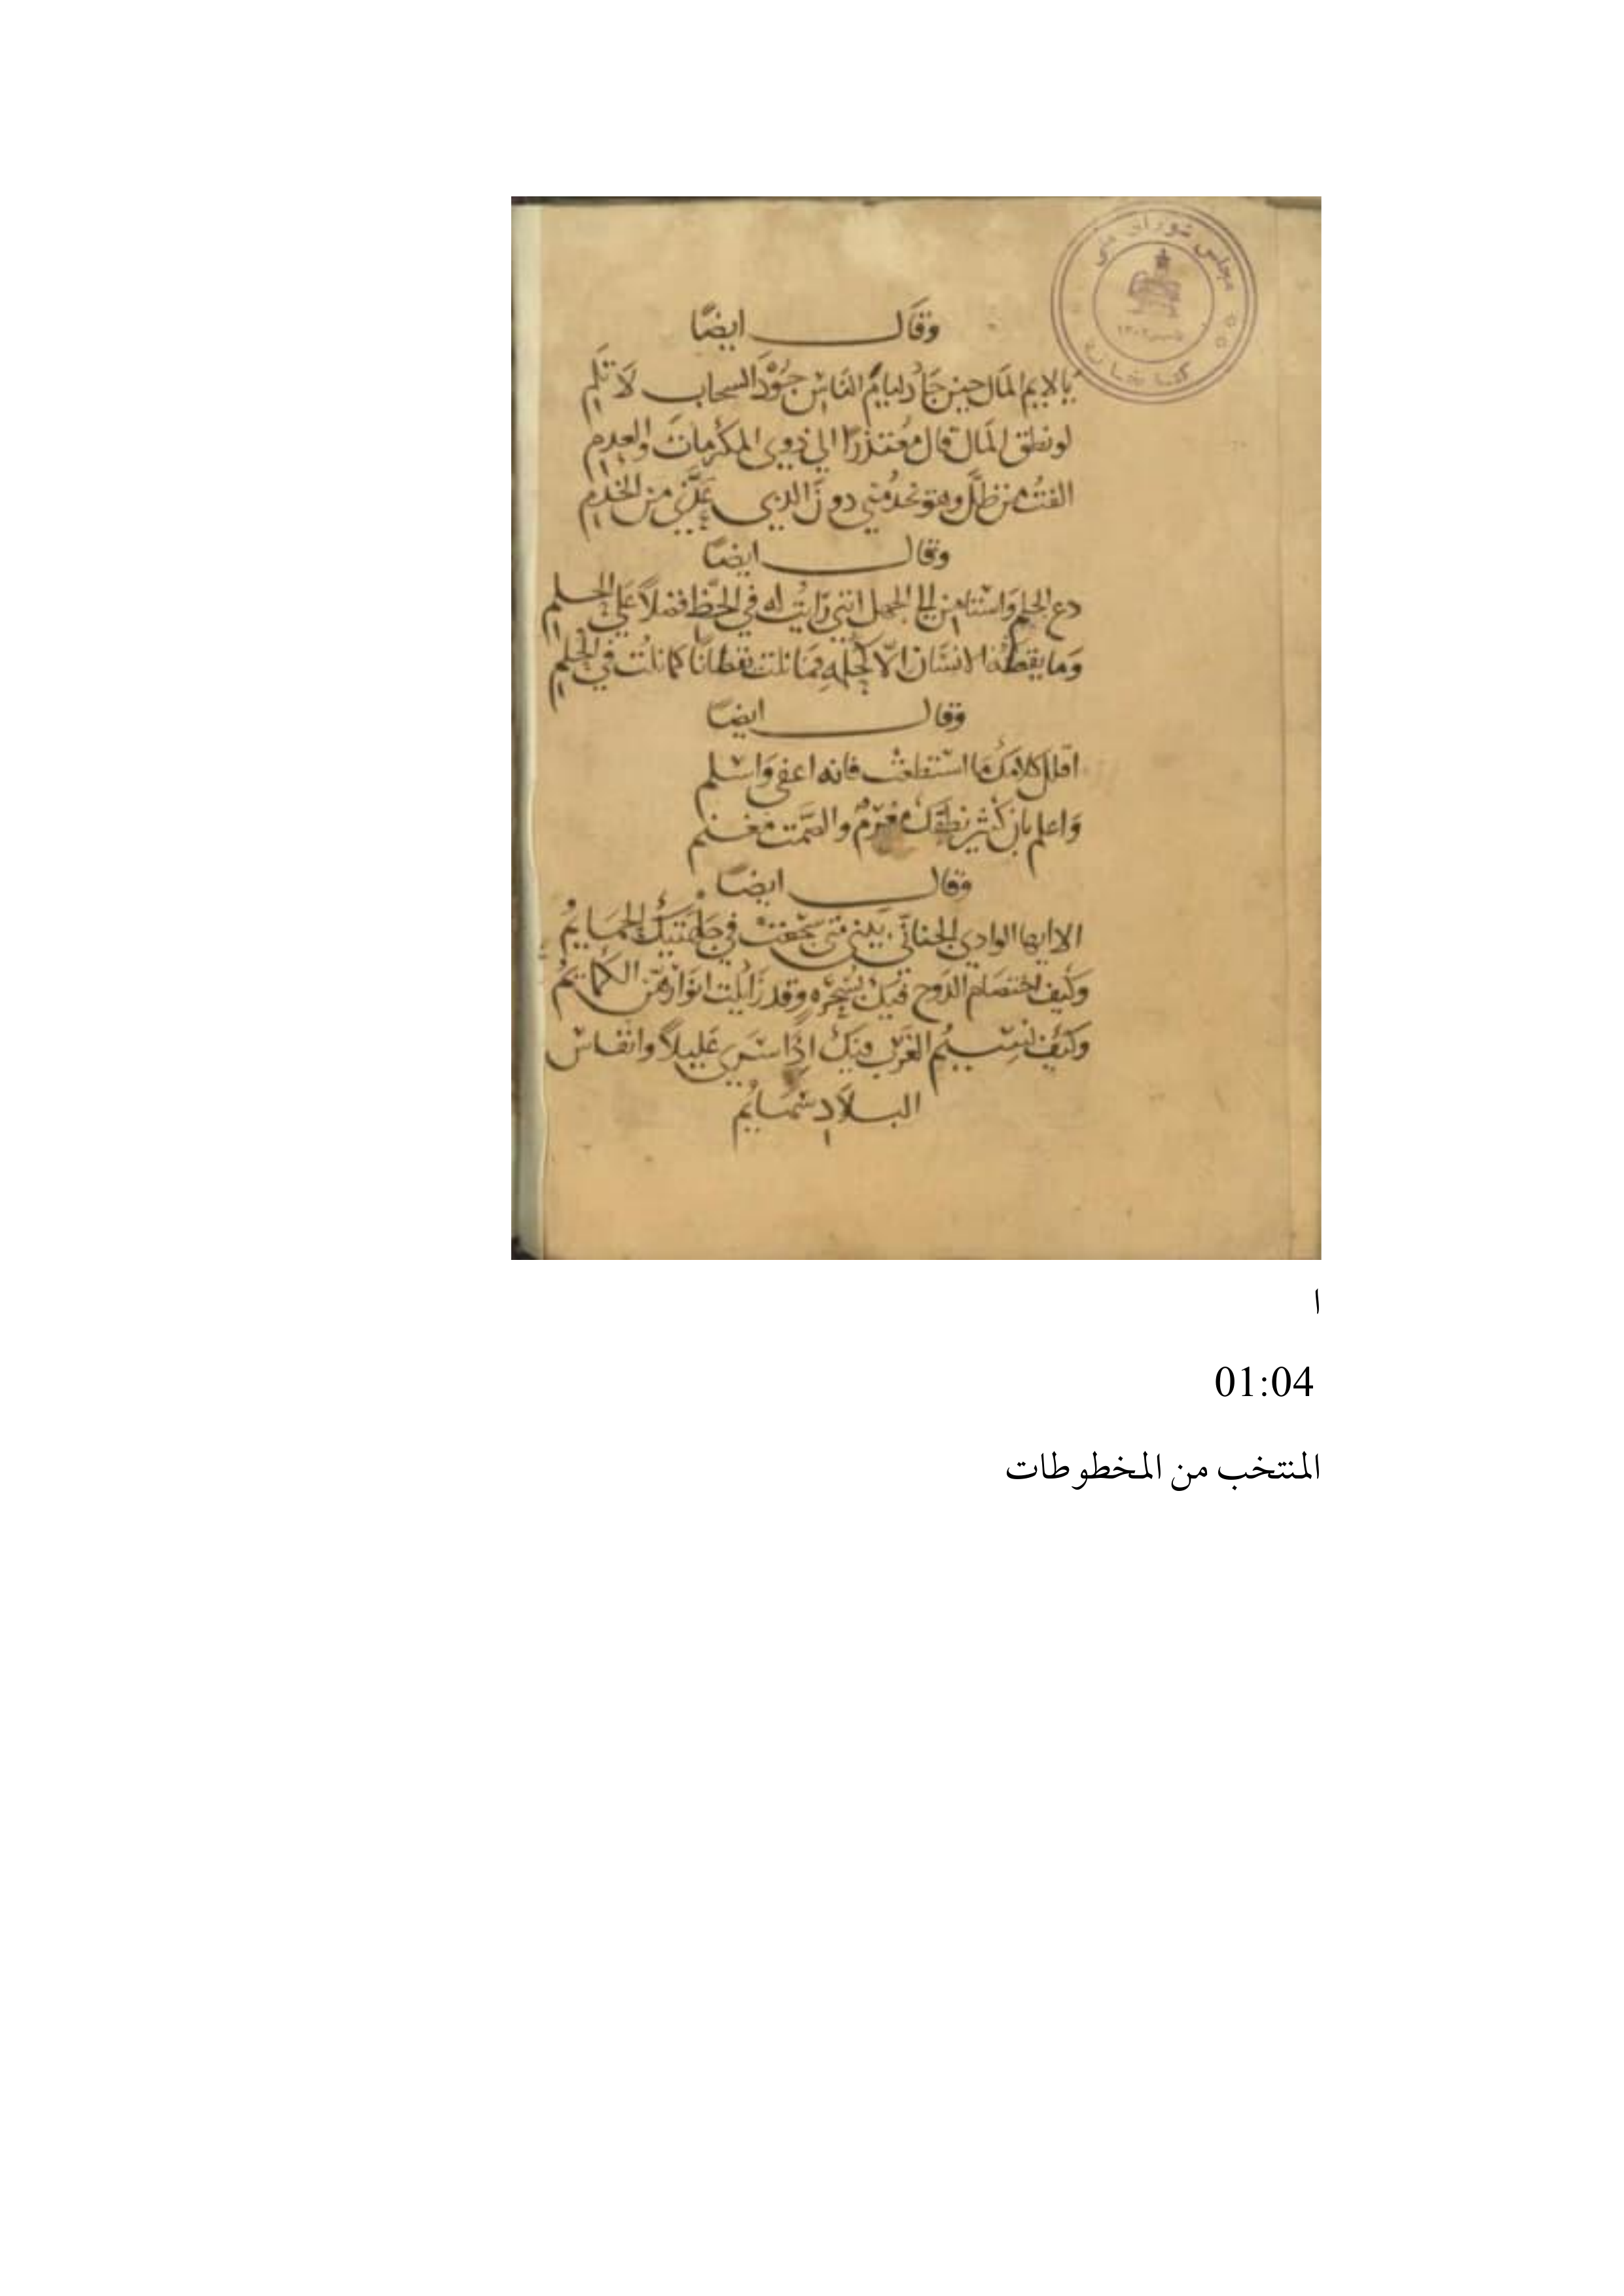 مجلس شورای ملی
کتابخانه
وقال ايضًا
يا لايم المال حين جاد ليام الناس جود السحاب لا تلم
لو نطق المال قال معتذرا الي ذوي المكرمات والعدم
الفت من ظل وهو يخدمني دون الذي عزّني من الخدم
وقال ايضًا
دع الحلم واستامن الي الجهل انني رايت له في الحظ فضلاً علي الحلم
وما يقظة الانسان الّا كحلمه فما نلت يقظانًا كما نلت في الحلم
وقال ايضًا
اقلل كلامك ما استطعت فانه اعفي واسلم
واعلم بان كثير نطقك مغرم والصمت مغنم
وقال ايضًا
الا ايها الوادي بيني متي سجعت في جلهتيك الحمايم
وكيف اخضام الدوح فيك بسحره وقد زايلت انوارهن الكمايم
وكيف نسيم الغرب فيك اذا سري عليلاً وانفاس
البلاد شمايم
ا
01:04
المنتخب من المخطوطات